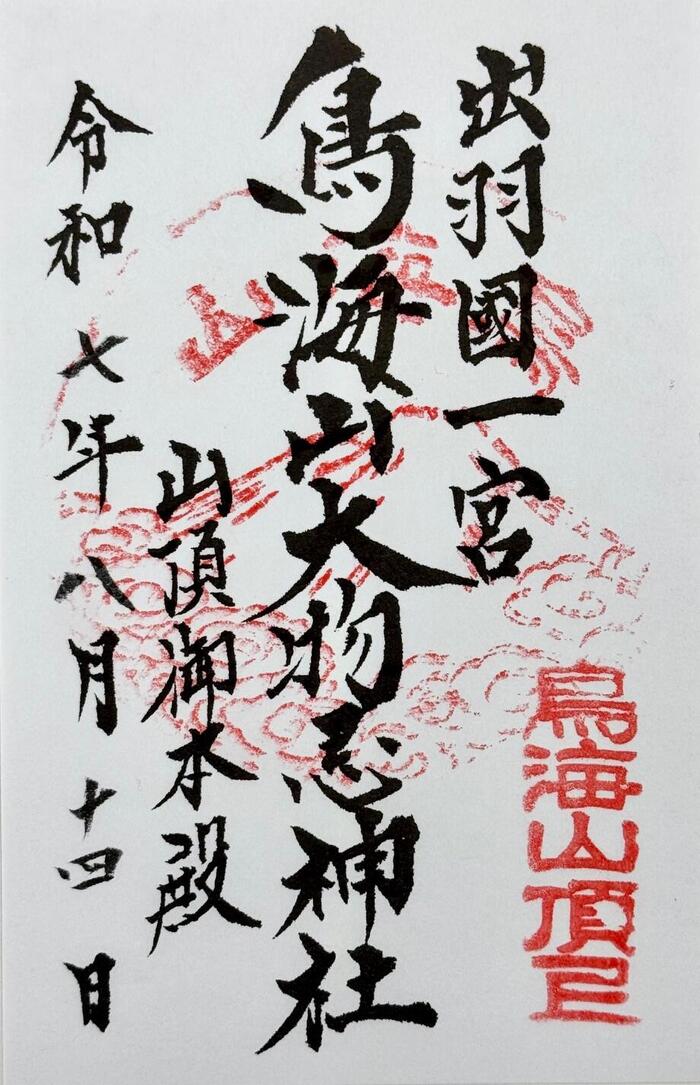 出羽國一宮
鳥海山頂之印
鳥海山大物忌神社
山頂御本殿
令和七年八月十四日